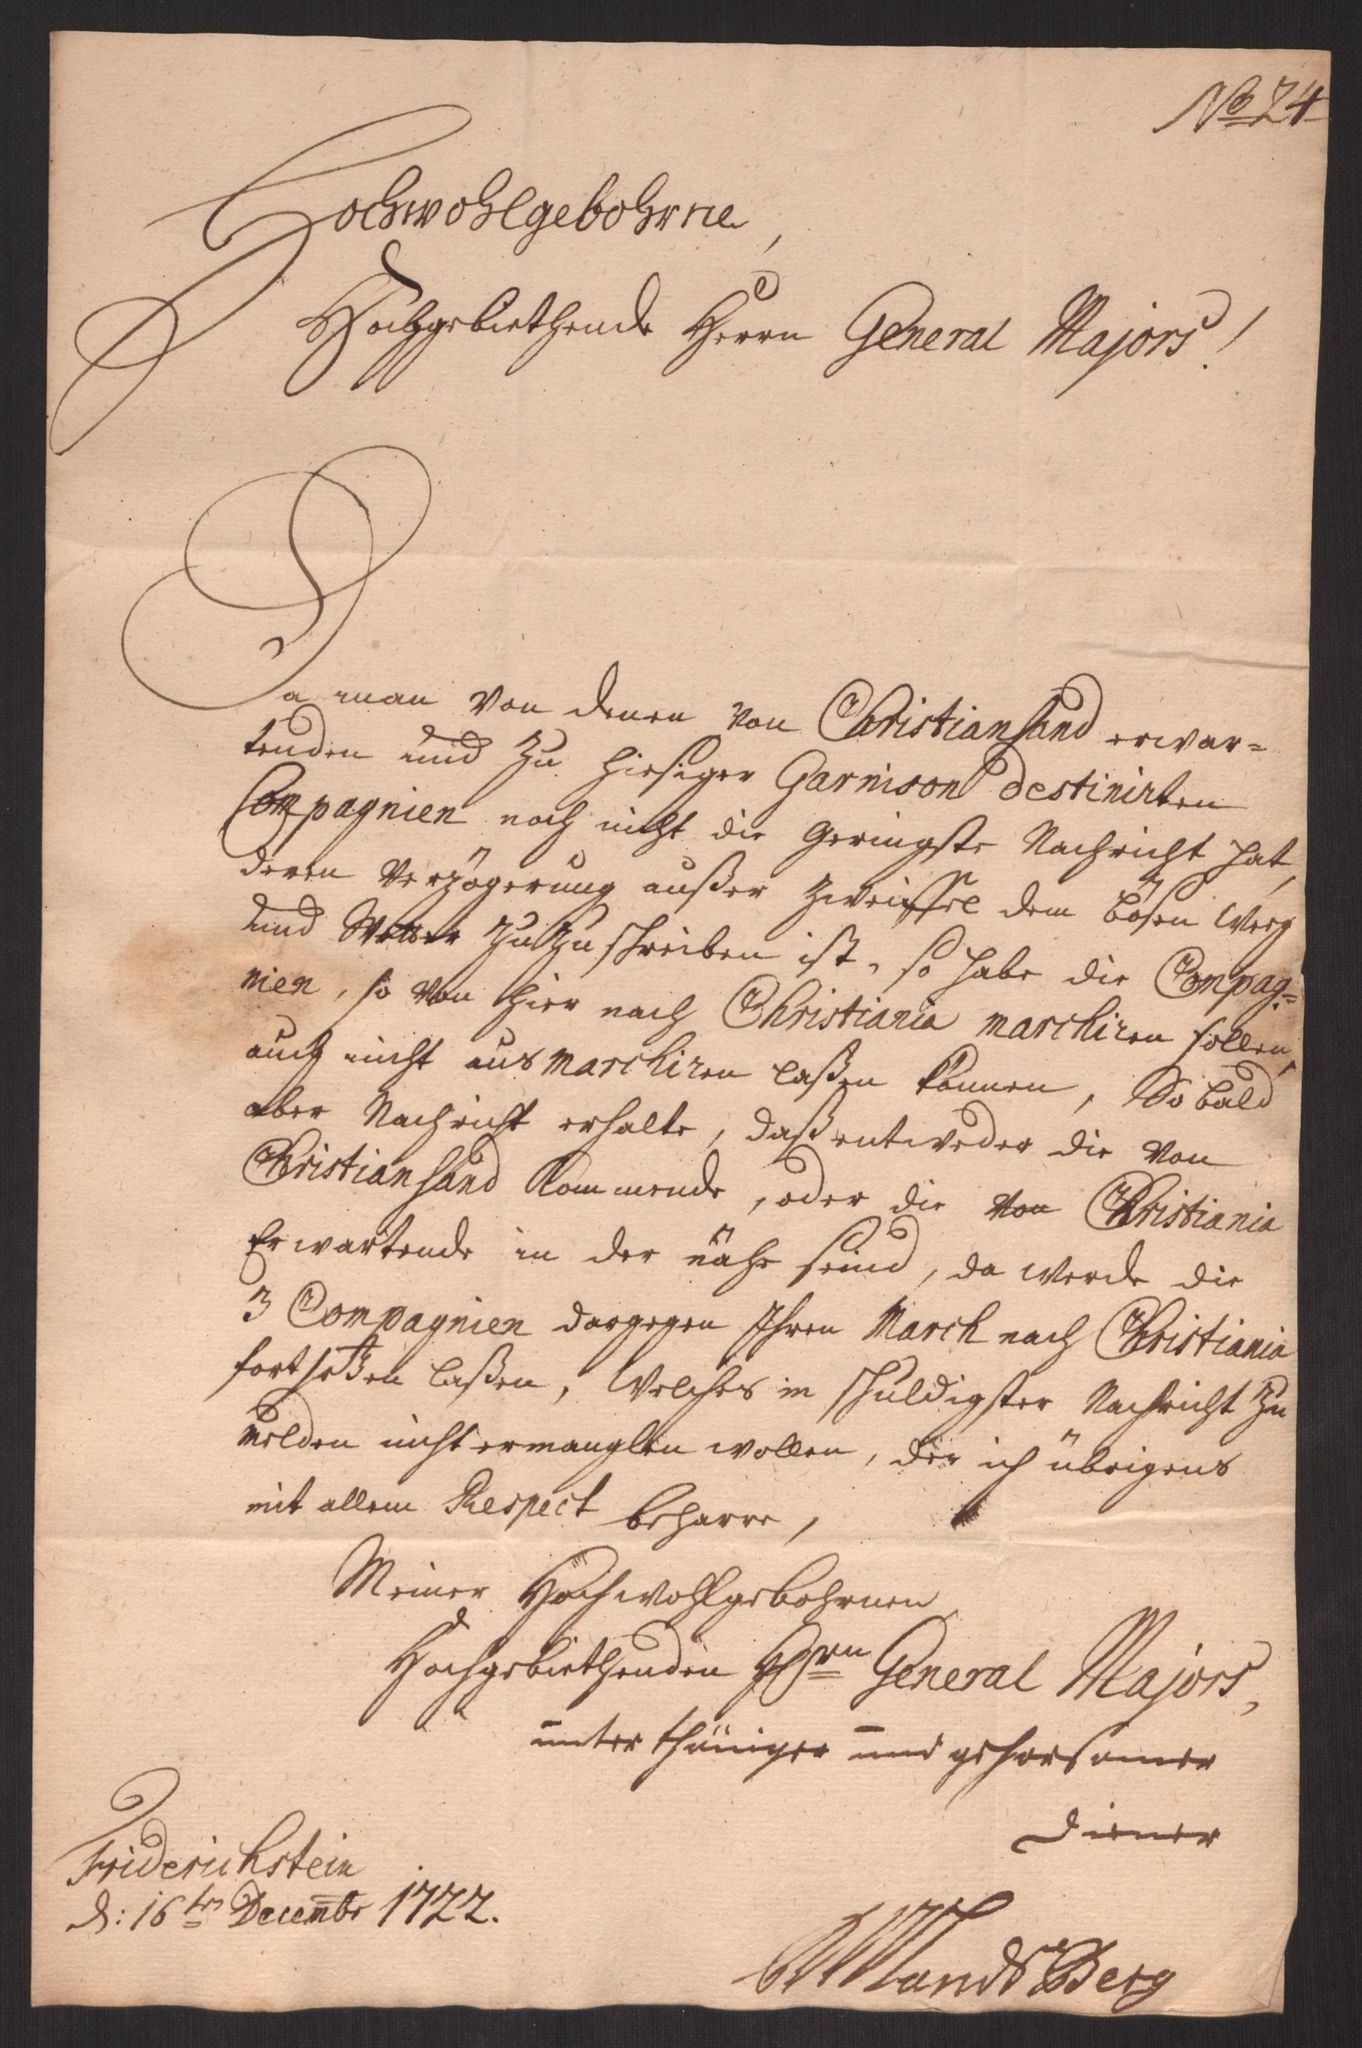 No 24
Hochwohlgebohrne,
Hochgebiethende Herrn General Majors!
Da man von denen von Christiansand erwar=
tenden und zu hiesiger Garnison destinirten
Compagnien noch nicht die geringste Nachricht hat,
deren Verzögerung außer zweiffel dem bösen Weeg
und Wetter zuzuschreiben ist, so habe die Compag=
nien, so von hier nach Christiania marchiren sollen,
auch nicht ausmarchiren laßen können, Sobald
aber Nachricht erhalte, daß entweder die von
Christiansand kommende, oder die von Christiania
Erwartende in der nähe seind, da werde die
3 Compagnien dargegen Ihren March nach Christiania
fortsetzen laßen, welches in schuldigster Nachricht zu
melden nicht ermanglen wollen, der ich übrigens
mit allem Respect beharre,
Meiner Hochwohlgebohrnen
Hochgebiethenden Hrn General Majors,
unterthäniger und gehorsamer
Diener
Friderichstein
d: 16ten Decembr 1722.
LandsBerg